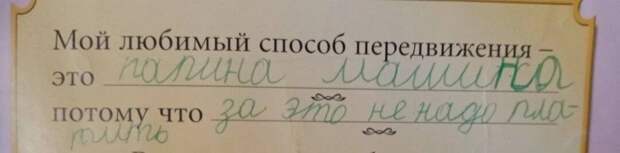 Мой любимый способ передвижения –
это папина машина
потому что за это не надо пла-
тить